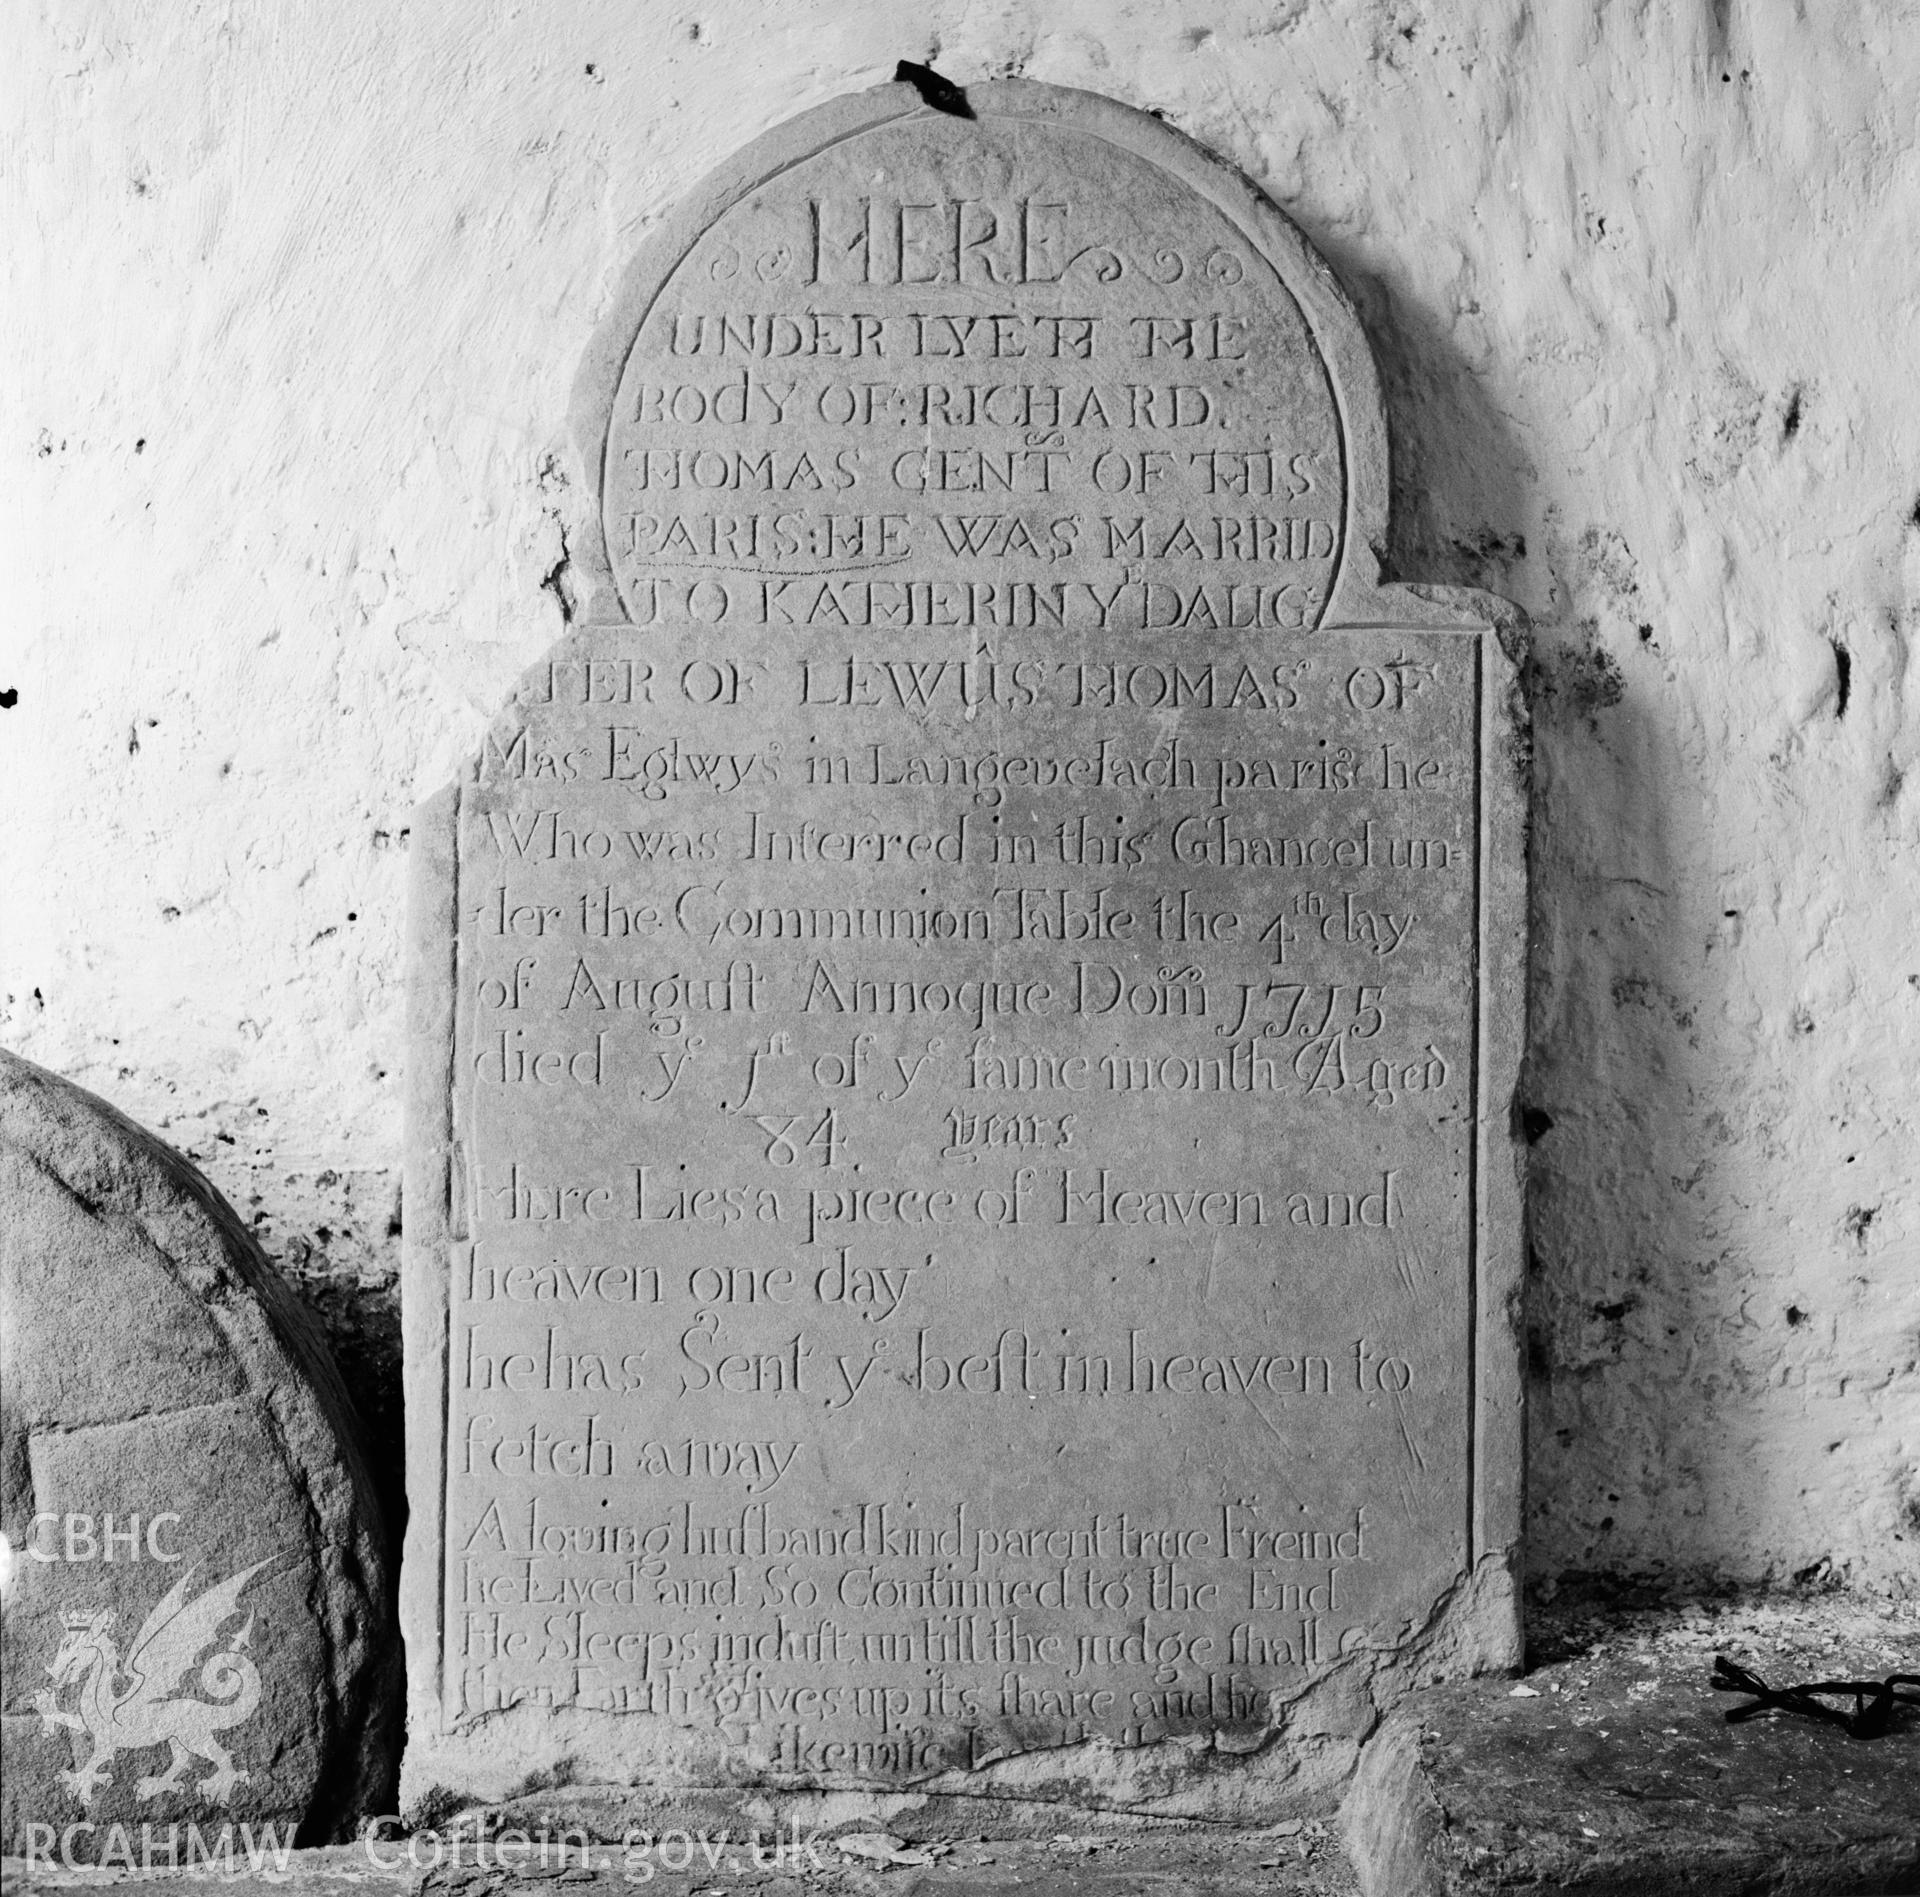 HERE
UNDER LYETH THE
BOdY OF: RICHARD.
THOMAS GENT OF THIS
PARIS: HE WAS MARRID
TO KATHERIN YE DAUG
TER OF LEWÛS THOMAS OF
Mâs Eglwys in Langevelach paris he
Who was Interred in this Chancel un=
der the Communion Table the 4th day
of Auguſt Annoque Dom 1715
died ye 1ſt of ye ſame month Aged
84 years
Here Lies a piece of Heaven and
heaven one day
he has Sent ye beſt in heaven to
fetch away
A loving huſband kind parent true Freind
he Lived and So Continued to the End
He Sleeps in duſt untill the judge ſhall
then Earth gives up its ſhare and he
Likewiſe
CBHC
RCAHMW Coflein.gov.uk